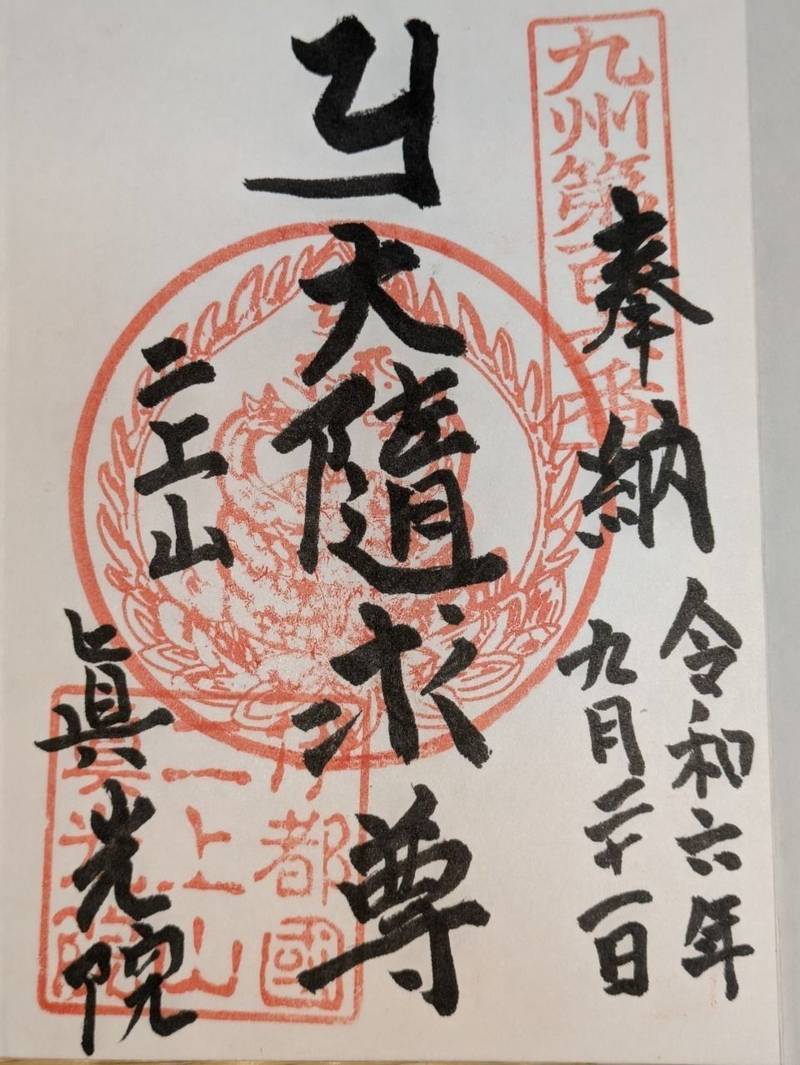 九州第百
番
奉納
令和六年
九月二十一日
大隨求尊
二上山
眞光院
伊都國
二上山
眞光院